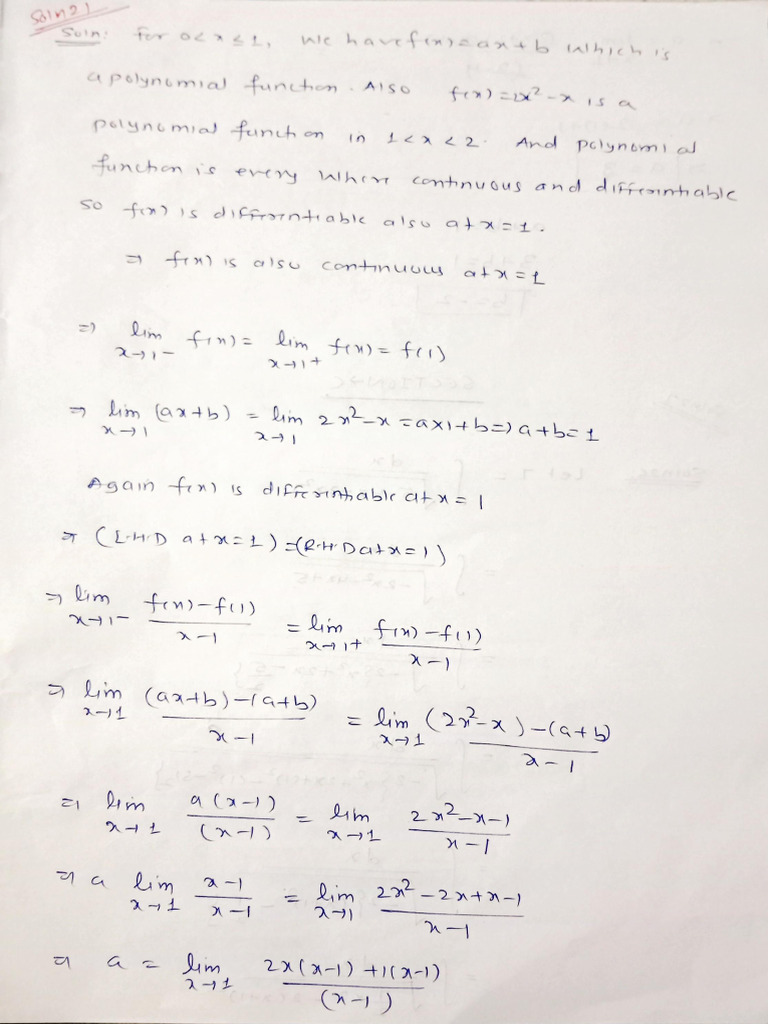 Soln 21
Soln: For 0<x≤1, we have f(x)=ax+b which is
a polynomial function. Also f(x)=2x²-x is a
polynomial function in 1<x<2. And polynomial
function is every where continuous and differentiable
so f(x) is differentiable also at x=1.
⇒ f(x) is also continuous at x=1
⇒ lim x→1- f(x) = lim x→1+ f(x) = f(1)
⇒ lim x→1 (ax+b) = lim x→1 2x²-x = a×1+b ⇒ a+b=1
Again f(x) is differentiable at x=1
⇒ (L.H.D at x=1) = (R.H.D at x=1)
⇒ lim x→1- (f(x)-f(1))/(x-1) = lim x→1+ (f(x)-f(1))/(x-1)
⇒ lim x→1 ((ax+b)-(a+b))/(x-1) = lim x→1 ((2x²-x)-(a+b))/(x-1)
⇒ lim x→1 (a(x-1))/((x-1)) = lim x→1 (2x²-x-1)/(x-1)
⇒ a lim x→1 (x-1)/(x-1) = lim x→1 (2x²-2x+x-1)/(x-1)
⇒ a = lim x→1 (2x(x-1)+1(x-1))/((x-1))